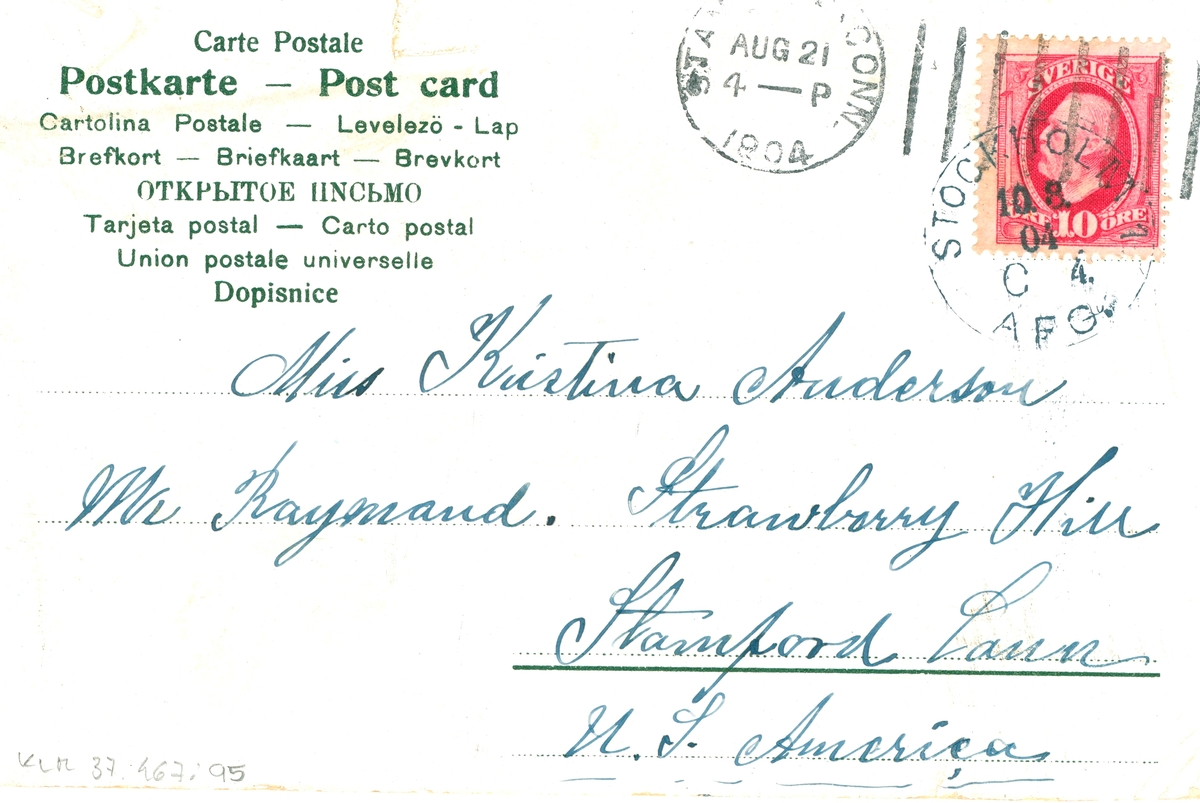 Carte Postale
Postkarte — Post card
Cartolina Postale — Levelezö - Lap
Brefkort — Briefkaart — Brevkort
ОТКРЫТОЕ ПИСЬМО
Tarjeta postal — Carto postal
Union postale universelle
Dopisnice
AUG 21
4 — P
CONN.
1904
SVERIGE
10 ÖRE
STOCKHOLM
10.8.
04
C 4.
AFG.
Miss Kristina Anderson
Mr Raymand. Strawberry Hill
Stamford Conn
U. S. America
KLM 37.467:95